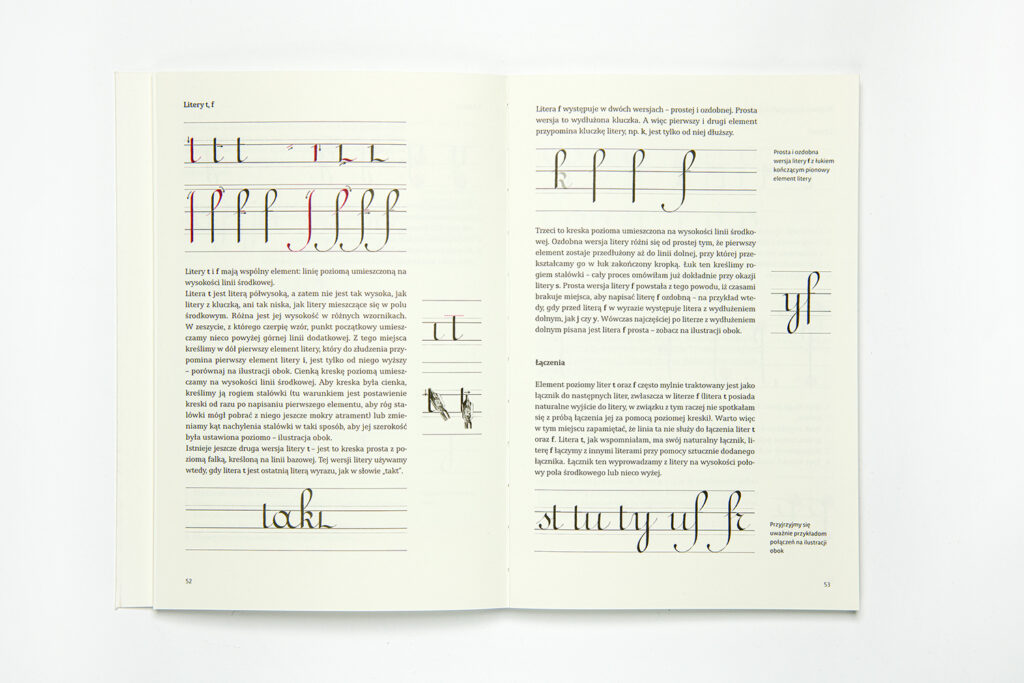 Litery t, f
t t t
f f f f f f f f
Litery t i f mają wspólny element: linię poziomą umieszczoną na
wysokości linii środkowej.
Litera t jest literą półwysoką, a zatem nie jest tak wysoka, jak
litery z kluczką, ani tak niska, jak litery mieszczące się w polu
środkowym. Różna jest jej wysokość w różnych wzornikach.
W zeszycie, z którego czerpię wzór, punkt początkowy umiesz-
czamy nieco powyżej górnej linii dodatkowej. Z tego miejsca
kreślimy w dół pierwszy element litery, który do złudzenia przy-
pomina pierwszy element litery i, jest tylko od niego wyższy
– porównaj na ilustracji obok. Cienką kreskę poziomą umiesz-
czamy na wysokości linii środkowej. Aby kreska była cienka,
kreślimy ją rogiem stalówki (tu warunkiem jest postawienie
kreski od razu po napisaniu pierwszego elementu, aby róg sta-
lówki mógł pobrać z niego jeszcze mokry atrament) lub zmie-
niamy kąt nachylenia stalówki w taki sposób, aby jej szerokość
była ustawiona poziomo – ilustracja obok.
Istnieje jeszcze druga wersja litery t – jest to kreska prosta z po-
ziomą falką, kreśloną na linii bazowej. Tej wersji litery używamy
wtedy, gdy litera t jest ostatnią literą wyrazu, jak w słowie „takt”.
ıt
takt
52
Litera f występuje w dwóch wersjach – prostej i ozdobnej. Prosta
wersja to wydłużona kluczka. A więc pierwszy i drugi element
przypomina kluczkę litery, np. k, jest tylko od niej dłuższy.
k f f f
Prosta i ozdobna
wersja litery f z łukiem
kończącym pionowy
element litery
Trzeci to kreska pozioma umieszczona na wysokości linii środko-
wej. Ozdobna wersja litery różni się od prostej tym, że pierwszy
element zostaje przedłużony aż do linii dolnej, przy której prze-
kształcamy go w łuk zakończony kropką. Łuk ten kreślimy ro-
giem stalówki – cały proces omówiłam już dokładnie przy okazji
litery s. Prosta wersja litery f powstała z tego powodu, iż czasami
brakuje miejsca, aby napisać literę f ozdobną – na przykład wte-
dy, gdy przed literą f w wyrazie występuje litera z wydłużeniem
dolnym, jak j czy y. Wówczas najczęściej po literze z wydłużeniem
dolnym pisana jest litera f prosta – zobacz na ilustracji obok.
yf
Łączenia
Element poziomy liter t oraz f często mylnie traktowany jest jako
łącznik do następnych liter, zwłaszcza w literze f (litera t posiada
naturalne wyjście do litery, w związku z tym raczej nie spotkałam
się z próbą łączenia jej za pomocą poziomej kreski). Warto więc
w tym miejscu zapamiętać, że linia ta nie służy do łączenia liter t
oraz f. Litera t, jak wspomniałam, ma swój naturalny łącznik, li-
terę f łączymy z innymi literami przy pomocy sztucznie dodanego
łącznika. Łącznik ten wyprowadzamy z litery na wysokości poło-
wy pola środkowego lub nieco wyżej.
st tu ty uf fr
Przyjrzyjmy się
uważnie przykładom
połączeń na ilustracji
obok
53